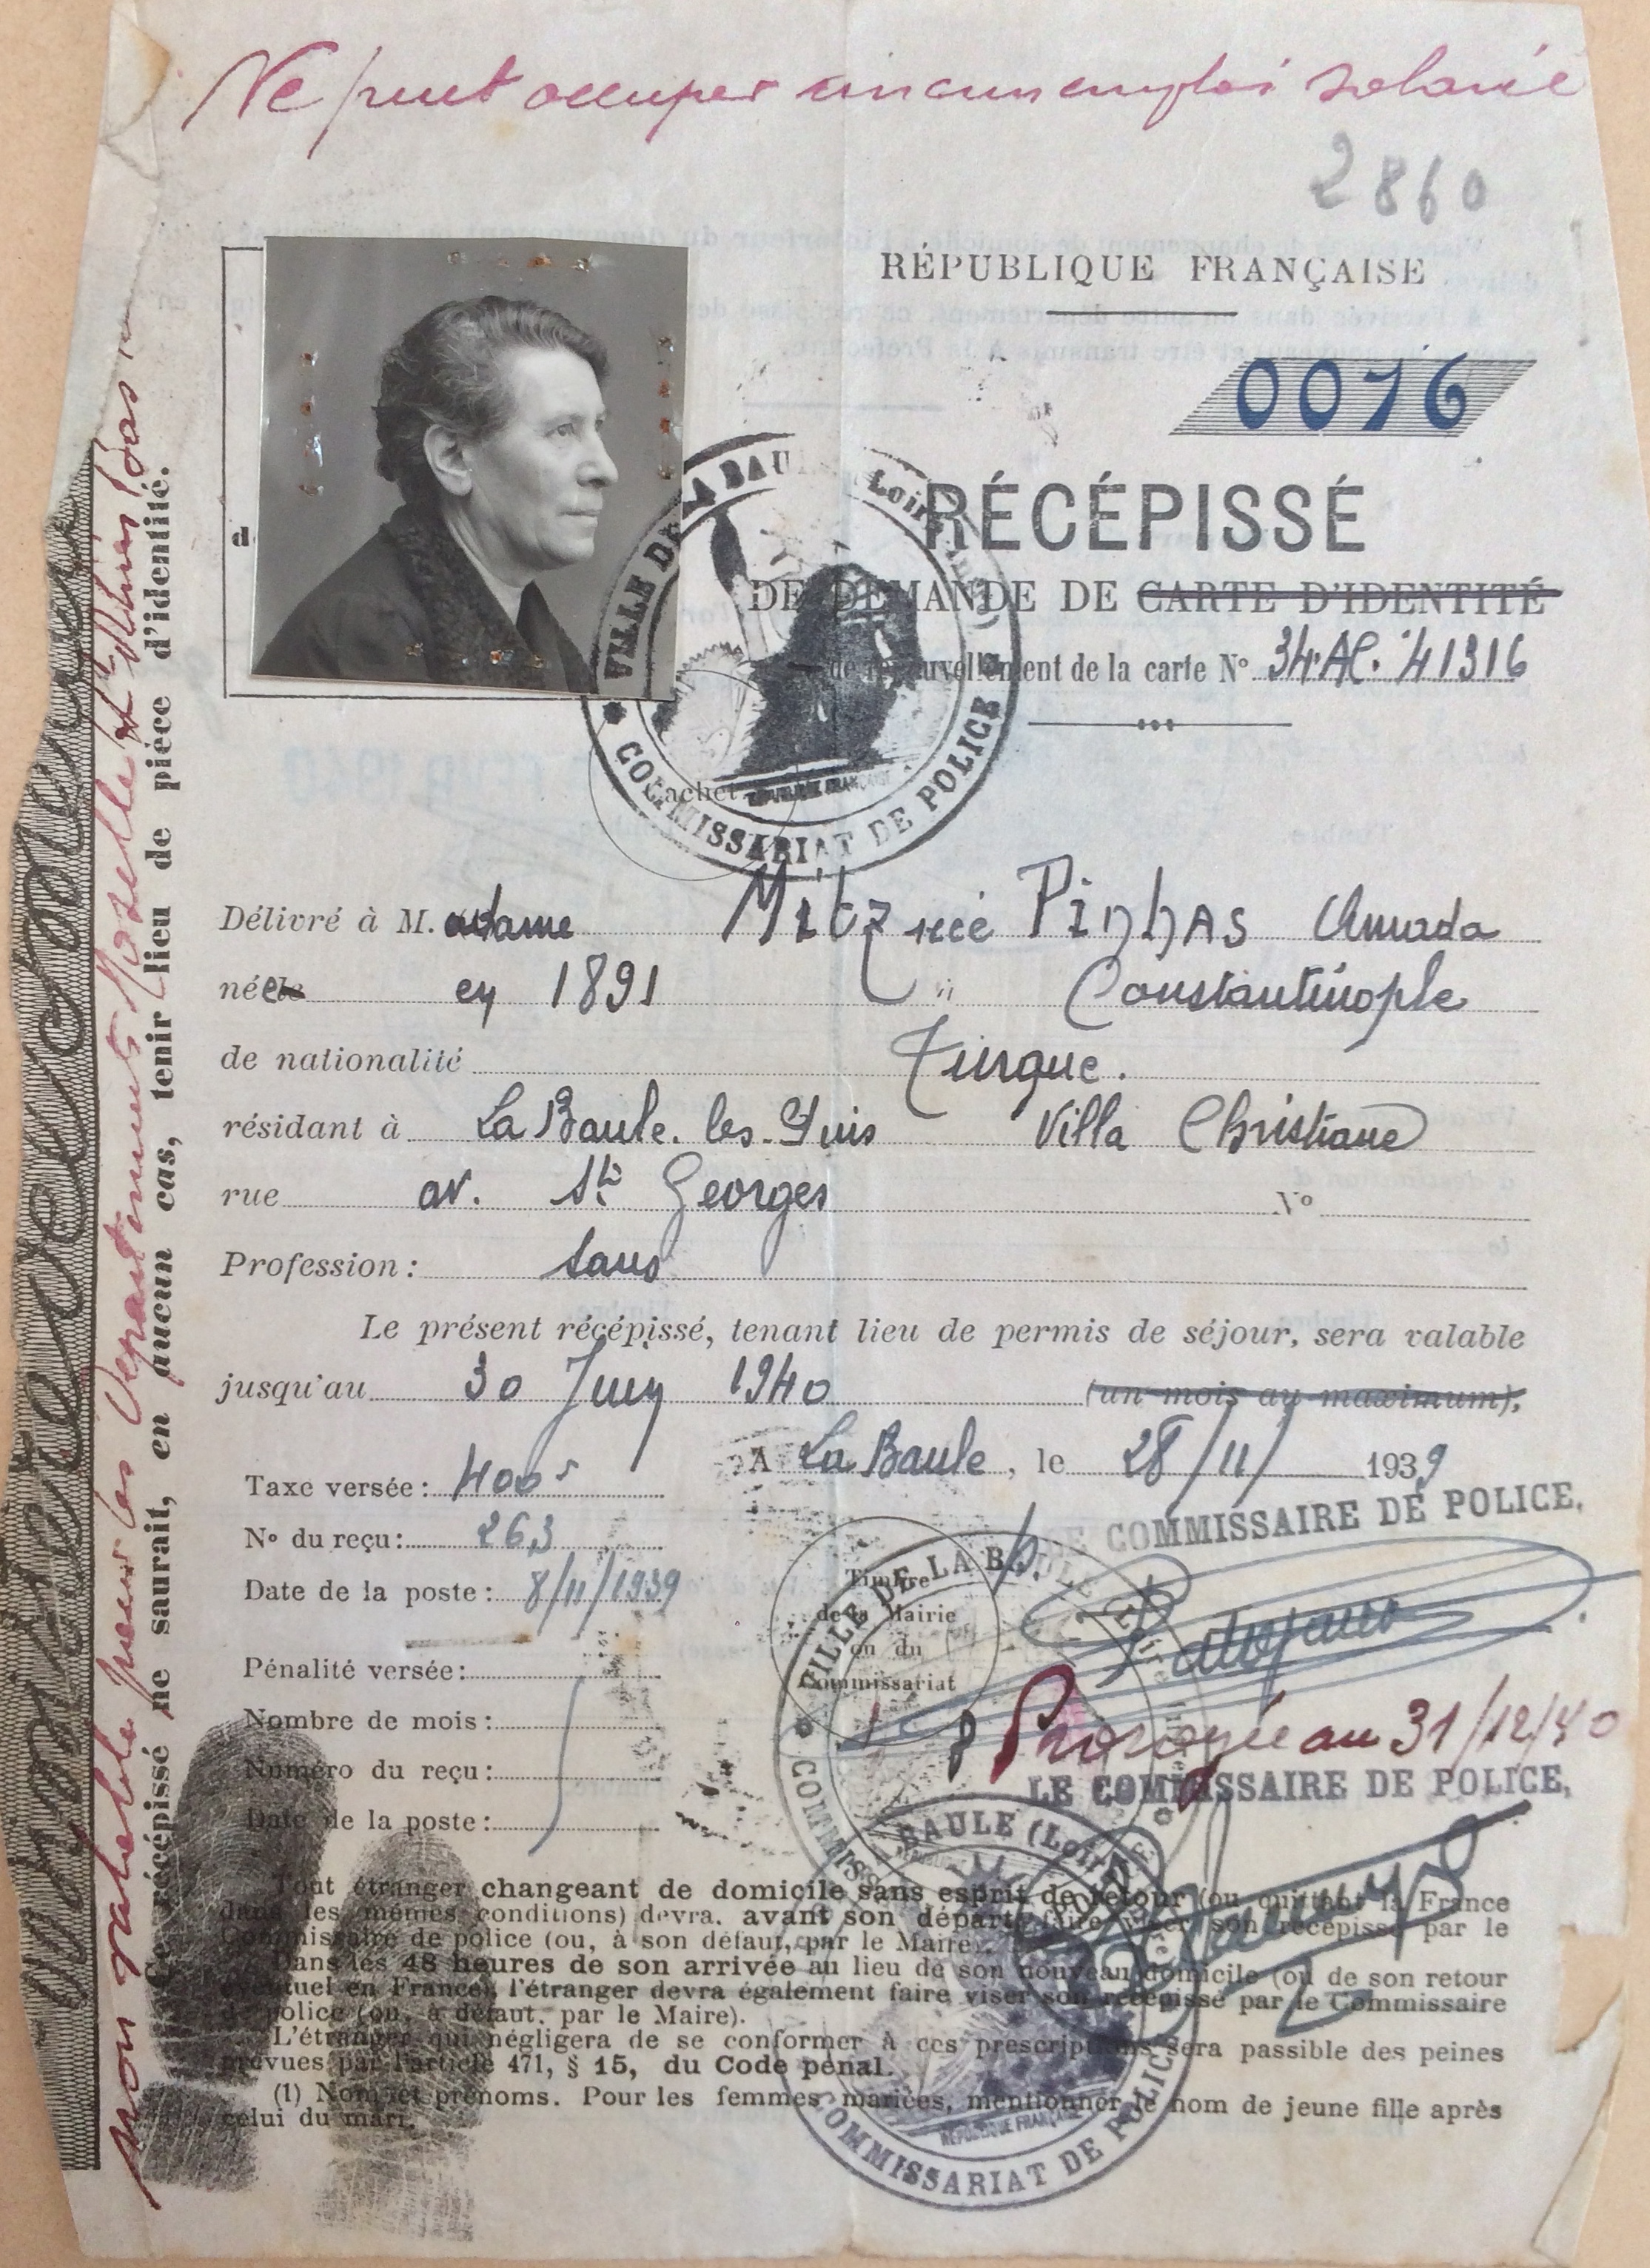 Ne peut occuper aucun emploi salarié
2860
RÉPUBLIQUE FRANÇAISE
0076
RÉCÉPISSÉ
DE DEMANDE DE CARTE D'IDENTITÉ
de renouvellement de la carte N° 34.AC.41316
d
VILLE DE LA BAULE (Loire
COMMISSARIAT DE POLICE
RÉPUBLIQUE FRANÇAISE
Cachet
Délivré à M. adame Mitz née Pinhas Amada
née en 1891 à Constantinople
de nationalité Turque.
résidant à La Baule-les-Pins Villa Christiane
rue av. St Georges N°
Profession : sans
Le présent récépissé, tenant lieu de permis de séjour, sera valable
jusqu'au 30 Juin 1940 (un mois au maximum),
A La Baule, le 28/11/ 1939
Taxe versée : 400
N° du reçu : 263
Date de la poste : 8/11/1939
Pénalité versée :
Nombre de mois :
Numéro du reçu :
Date de la poste :
LE COMMISSAIRE DE POLICE,
VILLE DE LA BAULE
Timbre
de la Mairie
ou du
Commissariat
Prorogée au 31/12/40
LE COMMISSAIRE DE POLICE,
BAULE (Loire
COMMISSARIAT DE POLICE
RÉPUBLIQUE FRANÇAISE
Tout étranger changeant de domicile sans esprit de retour (ou quittant la France
dans les mêmes conditions) devra, avant son départ, faire viser son récépissé par le
Commissaire de police (ou, à son défaut, par le Maire).
Dans les 48 heures de son arrivée au lieu de son nouveau domicile (ou de son retour
éventuel en France), l'étranger devra également faire viser son récépissé par le Commissaire
de police (ou, à défaut, par le Maire).
L'étranger qui négligera de se conformer à ces prescriptions sera passible des peines
prévues par l'article 471, § 15, du Code pénal.
(1) Nom et prénoms. Pour les femmes mariées, mentionner le nom de jeune fille après
celui du mari.
Ce récépissé ne saurait, en aucun cas, tenir lieu de pièce d'identité.
non valable pour les Départements Moselle Ht Rhin Bas